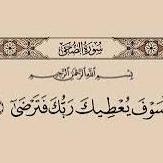 سُورَةُ الضُّحَى
بِسْمِ اللَّهِ الرَّحْمَٰنِ الرَّحِيمِ
سَوْفَ يُعْطِيكَ رَبُّكَ فَتَرْضَىٰ